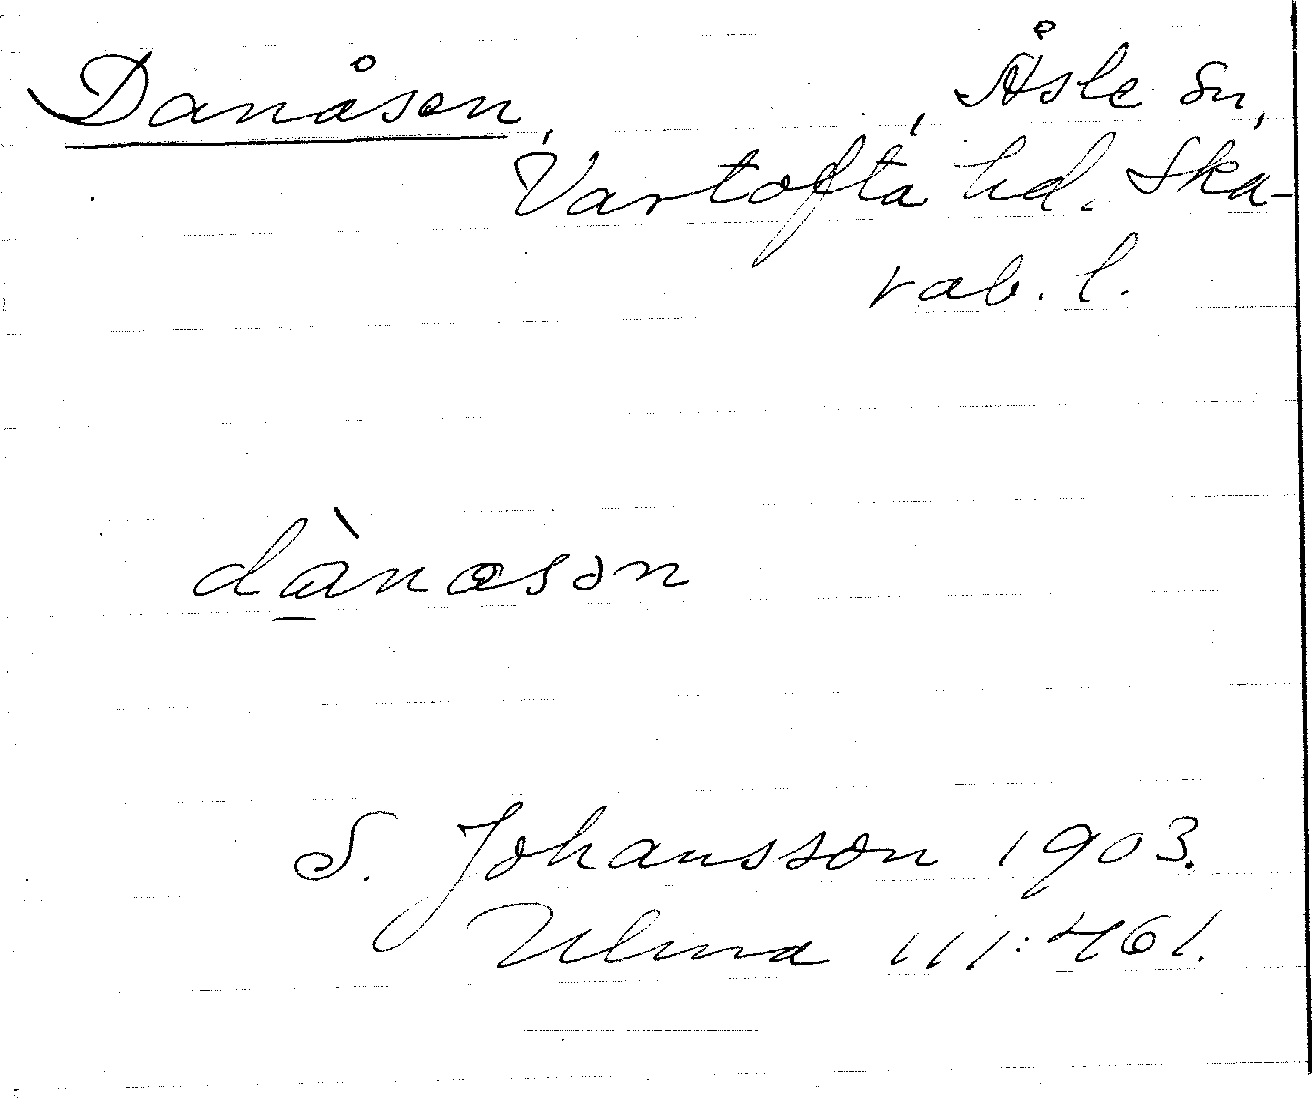 Danåsen, , Åsle sn,
Vartofta hd. Ska-
rab. l.
dànasən
S. Johansson 1903.
Ulma 111:461.